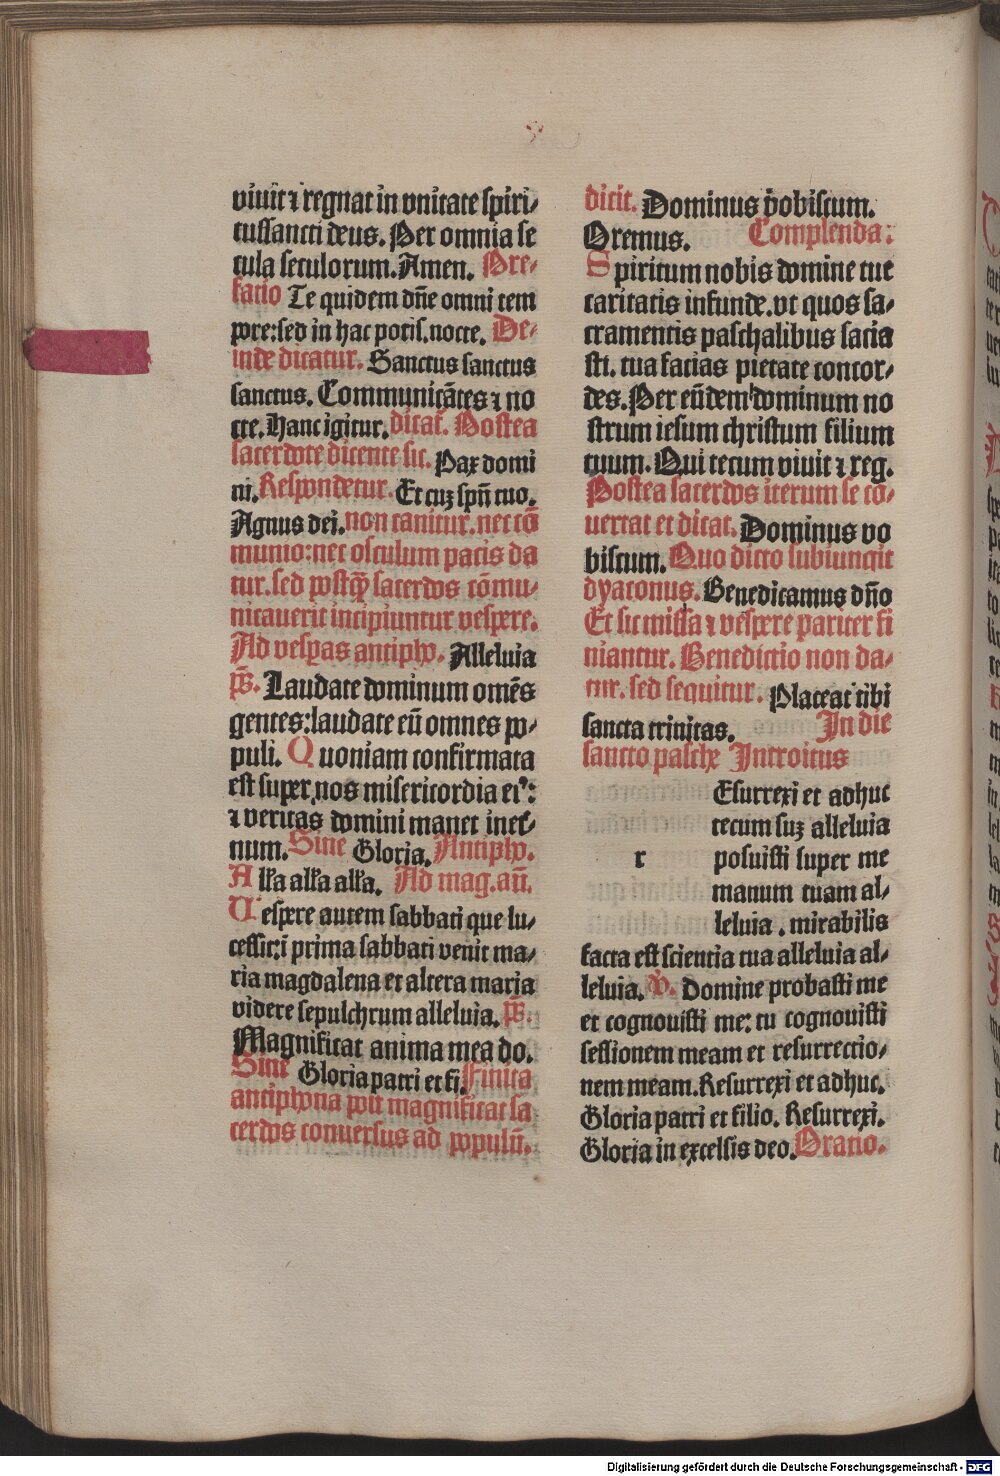 viuit ⁊ regnat in vnitate spiri⸗
tussancti deus. Per omnia se
cula seculorum. Amen. Pre⸗
fatio Te quidem dn̄e omni tem
pore: sed in hac potis. nocte. De⸗
inde dicatur. Sanctus sanctus
sanctus. Communicātes ⁊ no
cte. Hanc igitur. dicat̄. Postea
sacerdote dicente sic. Pax domi
ni. Respondetur. Et cuꝫ spū tuo.
Agnus dei. non canitur. nec cō
munio: nec osculum pacis da
tur. sed postq̄ sacerdos cōmu⸗
nicauerit incipiuntur vespere.
Ad vesp̄as antipho. Alleluia
p̄s. Laudate dominum omēs
gentes: laudate eū omnes po⸗
puli. Quoniam confirmata
est super nos misericordia eiꝰ:
⁊ veritas domini manet inet̄⸗
num. Sine Gloria. Antipho.
Alla alla alla. Ad mag. an̄.
Uespere autem sabbati que lu⸗
cessit: i prima sabbati venit ma⸗
ria magdalena et altera maria
videre sepulchrum alleluia. p̄s.
Magnificat anima mea do.
Sine Gloria patri et fi. Finita
antiphona post magnificat sa
cerdos conuersus ad populū.
dicit. Dominus vobiscum.
Oremus. Complenda:
Spiritum nobis domine tue
caritatis infunde. vt quos sa⸗
cramentis paschalibus sacia
sti. tua facias pietate concor⸗
des. Per eūdem dominum no
strum iesum christum filium
tuum. Qui tecum viuit ⁊ reg.
Postea sacerdos iterum se cō⸗
uertat et dicat. Dominus vo
biscum. Quo dicto subiungit
dyaconus. Benedicamus dn̄o
Et sic missa ⁊ vespere pariter fi
niantur. Benedictio non da⸗
tur. sed sequitur. Placeat tibi
sancta trinitas. In die
sancto pasche Introitus
Esurrexi et adhuc
tecum suꝫ alleluia
r posuisti super me
manum tuam al⸗
leluia. mirabilis
facta est scientia tua alleluia al⸗
leluia. v̄. Domine probasti me
et cognouisti me: tu cognouisti
sessionem meam et resurrectio⸗
nem meam. Resurrexi et adhuc.
Gloria patri et filio. Resurrexi.
Gloria in excelsis deo. Oratio.
Digitalisierung gefördert durch die Deutsche Forschungsgemeinschaft - DFG